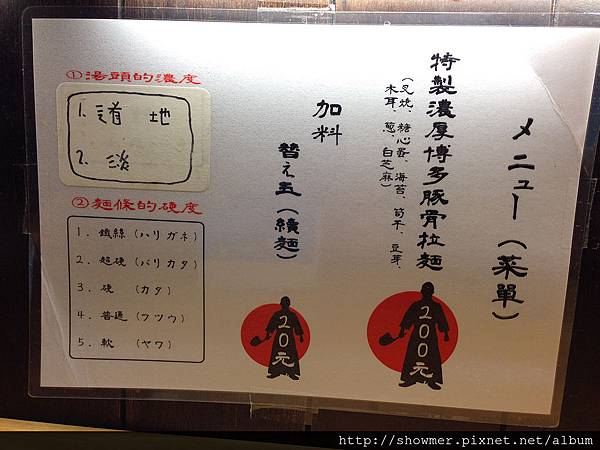 メニュー（菜單）
特製濃厚博多豚骨拉麵
（叉燒、糖心蛋、海苔、筍干、豆芽、
木耳、蔥、白芝麻）
200元
加料
替え玉（續麵）
20元
①湯頭的濃度
1. 道地
2. 淡
②麵條的硬度
1. 鐵絲（ハリガネ）
2. 超硬（バリカタ）
3. 硬（カタ）
4. 普通（フツウ）
5. 軟（ヤワ）
http://showmer.pixnet.net/album